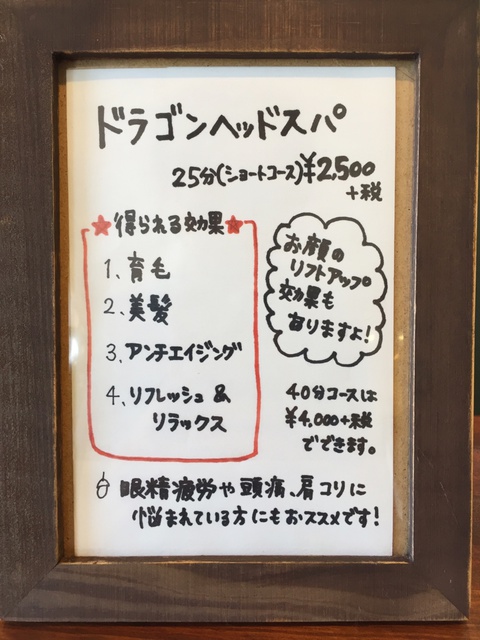 ドラゴンヘッドスパ
25分(ショートコース)¥2,500
+税
★得られる効果★
1、育毛
2、美髪
3、アンチエイジング
4、リフレッシュ&
リラックス
お顔の
リフトアップ
効果も
ありますよ!
40分コースは
¥4,000+税
でできます。
眼精疲労や頭痛、肩コリに
悩まれている方にもおススメです!